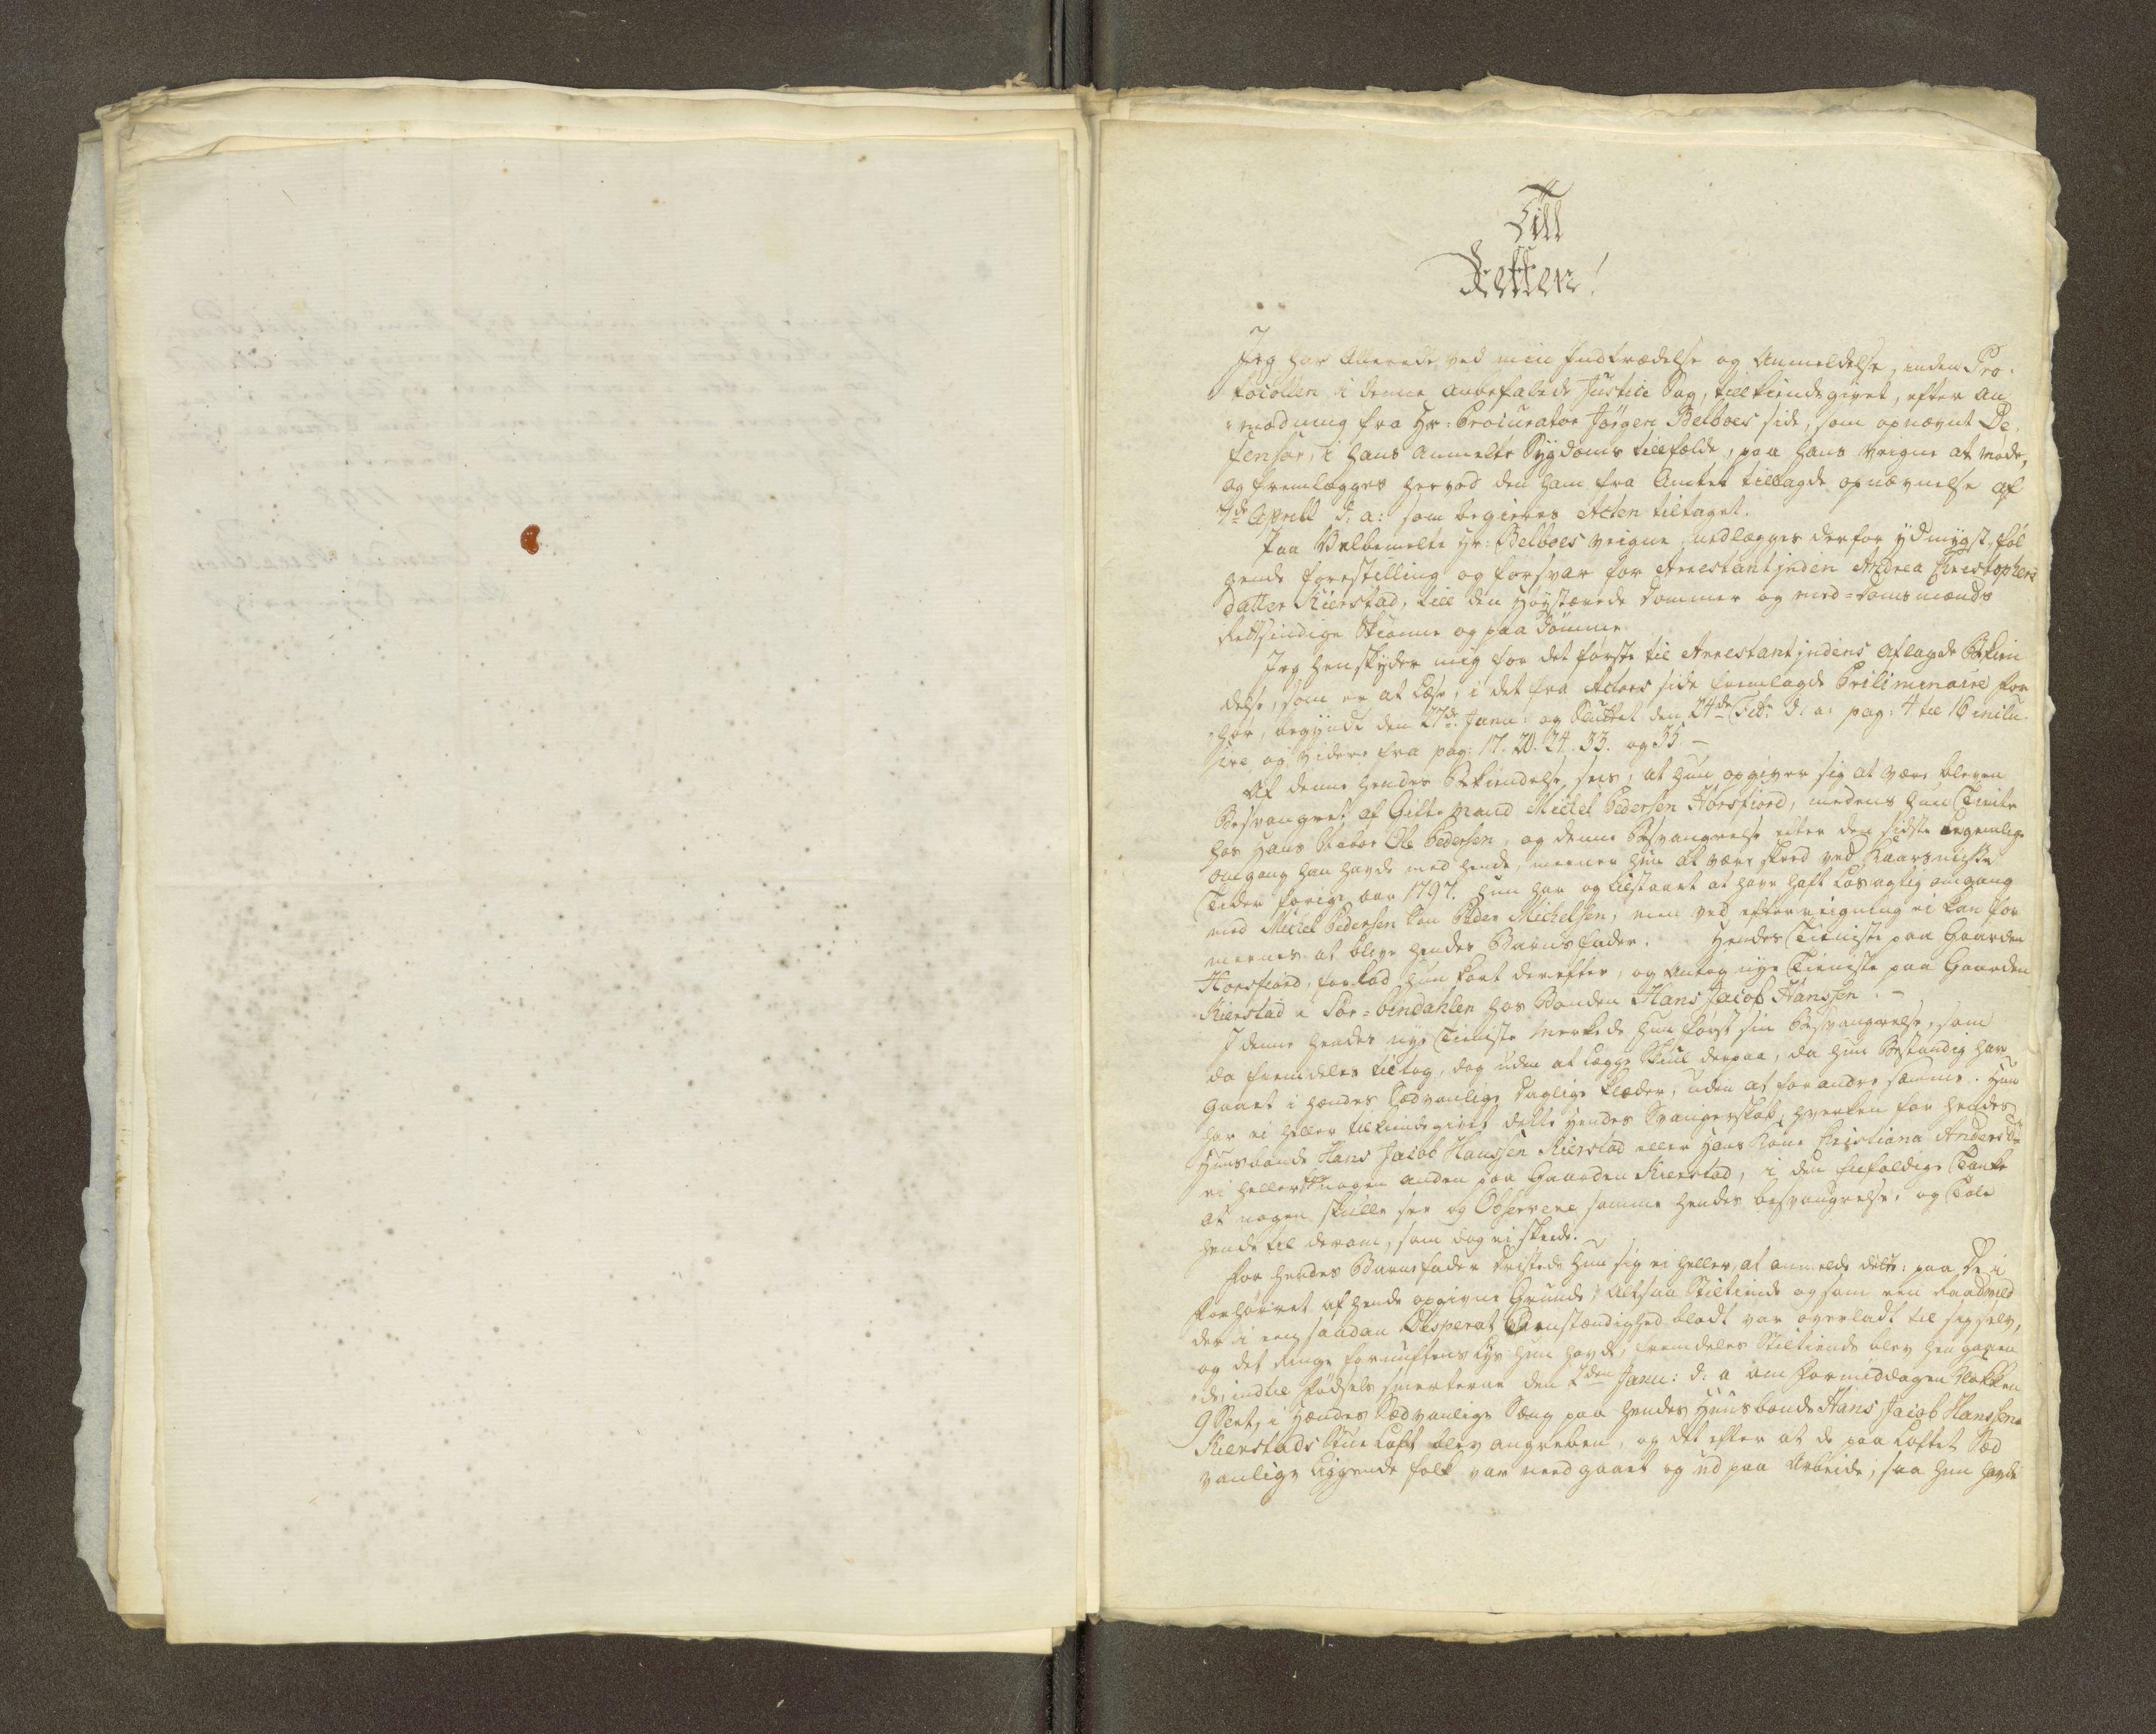 Till
Retten!
Jeg har allerede ved min Indtrædelse og Anmeldelse, inden Pro-
tocollen i denne anbefalede Justice Sag, tilkiendegivet, efter an-
modning fra Hr: Procurator Jørgen Belboes side, som opnævnt De-
fensor, i hans anmelte Sygdoms tilfælde, paa hans veigne at møde,
og fremlægges herved den ham fra Amtet tillagde opnævnelse af
7de April d: a: som begieres Acten tiltaget.
Paa Velbemelte Hr: Belboes veigne, nedlægges derfor ydmygst, føl-
gende forestilling og forsvar for Arrestantinden Andrea Christophers
datter Kierstad, till den Høystærede Dommer og med-domsmænds
Rettsindige Skiønne og paa Dømme.
Jeg henskyder mig for det første til Arrestantindens aflagde Bekien-
delse, som er at læse, i det fra Actors side fremlagde Priliminaire for-
hør, begyndt den 27de Janu: og Sluttet den 24de Feb: d: a: pag: 4 til 16 inclu-
sive og videre fra pag: 17. 20. 24. 33. og 35. –
Af denne hendes Bekiendelse sees, at hun opgiver sig at være bleven
Besvangret af Gifte Mand Michel Pedersen Horsfiord, medens hun Tiente
hos Hans Nabor Ole Pedersen, og denne Besvangrelse efter den sidste legemlige
omgang han havde med hende, meener hun at være skeed ved Kaarsmisse
Tider forige aar 1797. hun har og tilstaaet at have haft Løsagtig omgang
med Michel Pedersen Søn Peder Michelsen, men ved efterreigning ei kan for-
meenes at blive hendes Barns fader. Hendes Tieniste paa Gaarden
Horsfiord, forlod hun kort derefter, og antog nye Tieniste paa Gaarden
Kierstad i Sør-bindahlen hos Bonden Hans Jacob Hanssen. –
I denne hendes nye Tieniste merkede hun først sin Besvangrelse, som
da fremdeles tiltog, dog uden at lægge Skiul derpaa, da hun Bestandig har
gaaet i hendes Sædvanlige daglige klæder, uden at forandre samme. Hun
har ei heller tilkiendegivet dette hendes Svangerskab, hverken for hendes
Huusbonde Hans Jacob Hanssen Kierstad eller Hans Kone Christiana Andersdr
ei heller for nogen anden paa Gaarden Kierstad, i den Enfoldige Tanke
at nogen skulle see og Observere samme hendes besvangrelse, og Tale
hende til derom, som dog ei skeede.
For hendes Barnefader dristede hun sig ei heller, at anmelde dette: paa De i
forhøret af hende opgivne Grunde, Altsaa Stiltiende og som een Raadvild
der i een saadan Desperat Omstændighed blodt var overladt til sig selv,
og det ringe fornuftens lys hun havde, fremdeles Stiltiende blev hengaaen-
de, indtil fødsels smerterne den 2den Janu: d: a om Formiddagen Klokken
9 Slet, i hendes Sædvanlige Seng paa hendes Huusbonde Hans Jacob Hanssen
Kierstads Stue Loft blev angreben, og det efter at de paa Loftet Sæd-
vanlige liggende folk var need gaaet og ud paa Arbeide, saa hun havde